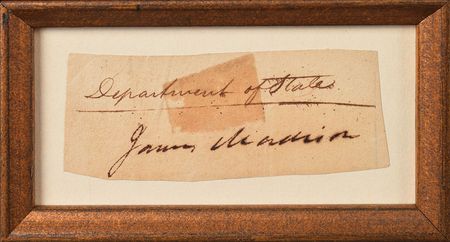 Department of State
James Madison